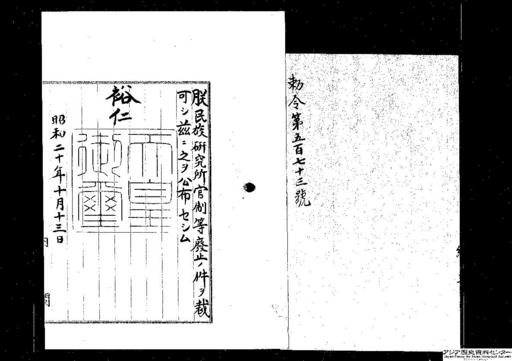 勅令第五百七十三號
朕民族研究所官制等廢止ノ件ヲ裁
可シ茲ニ之ヲ公布セシム
裕仁
天皇御璽
昭和二十年十月十三日
アジア歴史資料センター